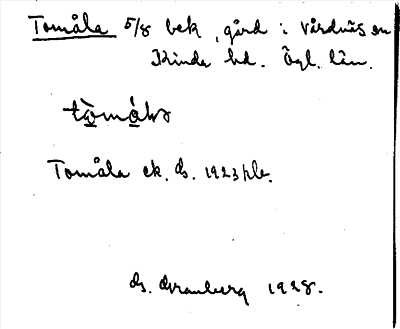 Tomåla 5/8 bek, gård i Vårdnäs sn
Kinda hd. Ögl. län.
Tomåla ek. ds. 1923
ds. Granberg 1928.